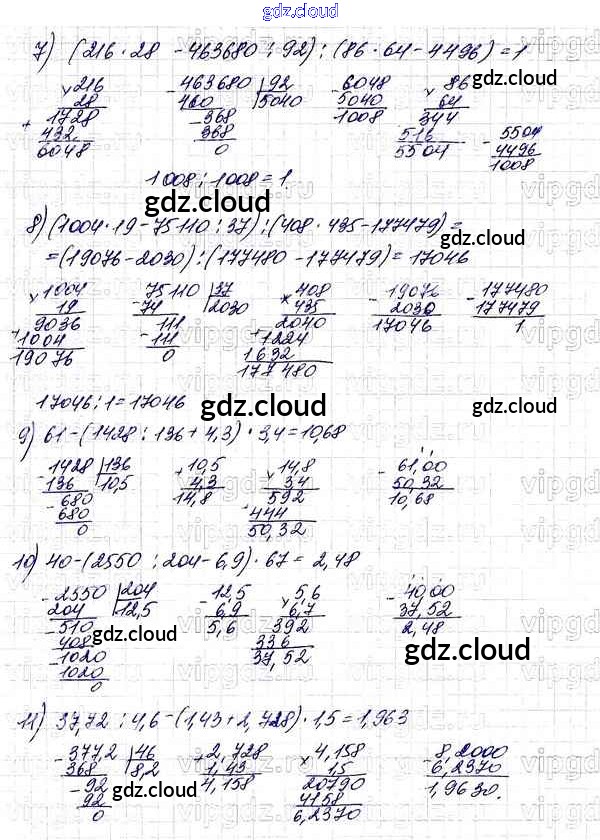 gdz.cloud
7) (216·28 -463680:92):(86·64-4496)=1
216 -463680 |92 -6048 86
×28 460 5040 5040 ×64
+1728 -368 1008 344
432 368 516 -5504
6048 0 5504 4496
1008
1008:1008=1.
8)(1004·19-75110:37):(408·435-177479)=
=(19076-2030):(177480-177479)=17046
×1004 -75110 |37 ×408 -19076 -177480
19 74 2030 435 2030 177479
9036 -111 2040 17046 1
+1004 111 +1224
19076 0 1632
177480
17046:1=17046
9) 61-(1428:136+4,3)·3,4=10,68
-1428 |136 +10,5 ×14,8 -61,00
136 10,5 4,3 34 50,32
-680 14,8 592 10,68
680 +444
0 50,32
10) 40-(2550:204-6,9)·67=2,48
-2550 |204 -12,5 ×5,6 -40,00
204 12,5 6,9 6,7 37,52
-510 5,6 392 2,48
408 336
-1020 37,52
1020
0
11) 37,72:4,6-(1,43+2,728)·1,5=1,963
-377,2 |46 +2,728 ×4,158 -8,2000
368 8,2 1,43 1,5 6,2370
-92 4,158 20790 1,9630.
92 4158
0 6,2370
gdz.cloud
gdz.cloud
gdz.cloud
gdz.cloud
gdz.cloud
gdz.cloud
gdz.cloud
gdz.cloud
gdz.cloud
gdz.cloud
gdz.cloud
gdz.cloud